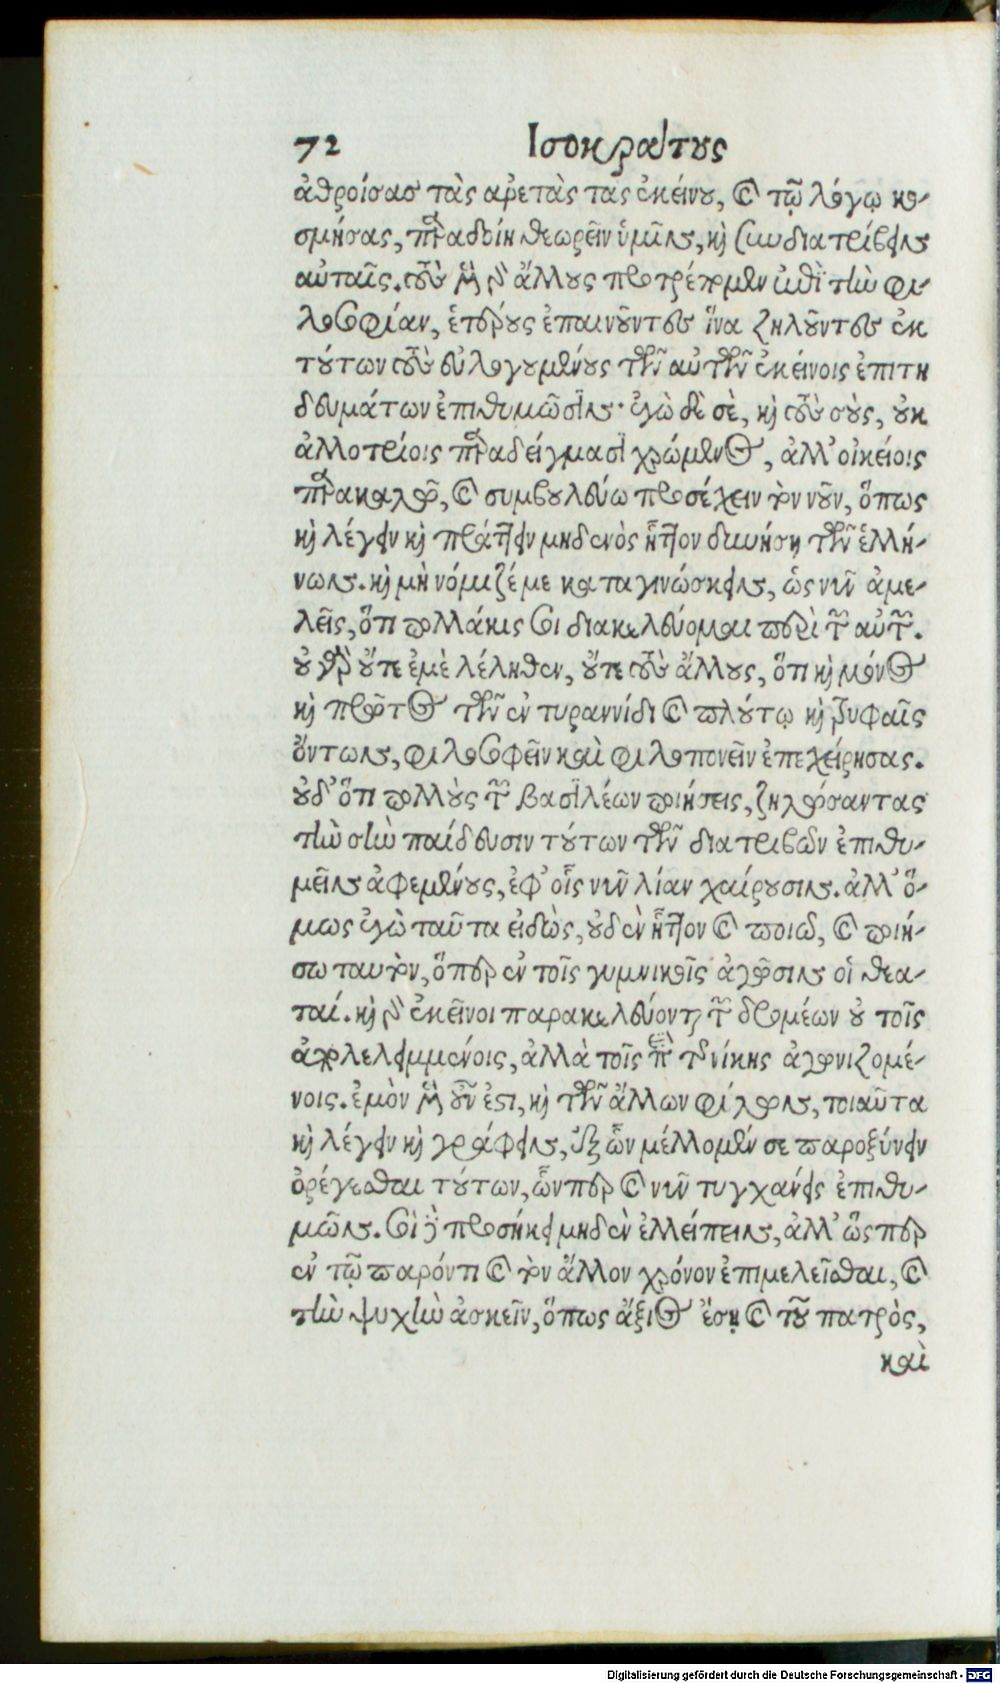 72 Ισοκράτους
ἀθροίσας τὰς ἀρετὰς τὰς ἐκείνου, καὶ τῷ λόγῳ κο-
σμήσας, παραδοίη θεωρεῖν ὑμῖν, καὶ συνδιατρίβειν
αὐταῖς. τοὺς μὲν γὰρ ἄλλους προτρέπομεν ἐπὶ τὴν φι-
λοσοφίαν, ἑτέρους ἐπαινοῦντες ἵνα ζηλοῦντες ἐκ
τούτων τοὺς εὐλογουμένους τῶν αὐτῶν ἐκείνοις ἐπιτη
δευμάτων ἐπιθυμῶσιν· ἐγὼ δὲ σὲ, καὶ τοὺς σοὺς, οὐκ
ἀλλοτρίοις παραδείγμασι χρώμενος, ἀλλ' οἰκείοις
παρακαλῶ, καὶ συμβουλεύω προσέχειν τὸν νοῦν, ὅπως
καὶ λέγειν καὶ πράττειν μηδενὸς ἧττον δυνήσῃ τῶν ἑλλή-
νων. καὶ μὴ νόμιζέ με καταγινώσκειν, ὡς νῦν ἀμε-
λεῖς, ὅτι πολλάκις σοι διακελεύομαι περὶ τῶν αὐτῶν.
οὐ γὰρ οὔτε ἐμὲ λέληθεν, οὔτε τοὺς ἄλλους, ὅτι καὶ μόνος
καὶ πρῶτος τῶν ἐν τυραννίδι καὶ πλούτῳ καὶ τρυφαῖς
ὄντων, φιλοσοφεῖν καὶ φιλοπονεῖν ἐπεχείρησας.
οὐδ' ὅτι πολλοὺς τῶν βασιλέων ποιήσεις, ζηλώσαντας
τὴν σὴν παίδευσιν τούτων τῶν διατριβῶν ἐπιθυ-
μεῖν ἀφεμένους, ἐφ' οἷς νῦν λίαν χαίρουσιν. ἀλλ' ὅ-
μως ἐγὼ ταῦτα εἰδὼς, οὐδὲν ἧττον καὶ ποιῶ, καὶ ποιή-
σω ταυτὸν, ὅπερ ἐν τοῖς γυμνικοῖς ἀγῶσιν οἱ θεα-
ταί. καὶ γὰρ ἐκεῖνοι παρακελεύονται τῶν δρομέων οὐ τοῖς
ἀπολελειμμένοις, ἀλλὰ τοῖς περὶ τῆς νίκης ἀγωνιζομέ-
νοις. ἐμὸν μὲν οὖν ἐστι, καὶ τῶν ἄλλων φίλων, τοιαῦτα
καὶ λέγειν καὶ γράφειν, ἐξ ὧν μέλλομέν σε παροξύνειν
ὀρέγεσθαι τούτων, ὧνπερ καὶ νῦν τυγχάνεις ἐπιθυ-
μῶν. σοὶ δὲ προσήκει μηδὲν ἐλλείπειν, ἀλλ' ὥσπερ
ἐν τῷ παρόντι καὶ τὸν ἄλλον χρόνον ἐπιμελεῖσθαι, καὶ
τὴν ψυχὴν ἀσκεῖν, ὅπως ἄξιος ἔσῃ καὶ τοῦ πατρὸς,
καὶ
Digitalisierung gefördert durch die Deutsche Forschungsgemeinschaft - DFG